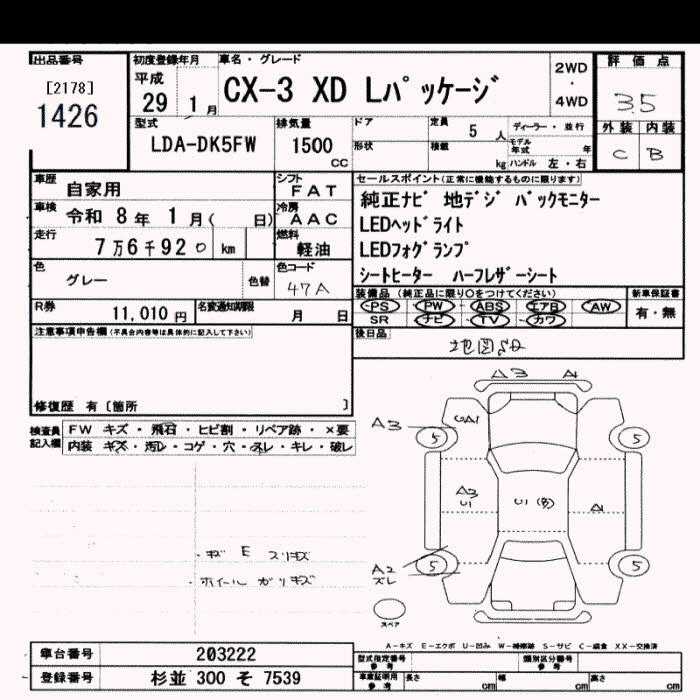 出品番号
[2178]
1426
初度登録年月
平成
29 1月
車名・グレード
CX-3 XD Lパッケージ
2WD
・
4WD
評価点
3.5
外装 内装
C B
型式
LDA-DK5FW
排気量
1500
CC
ドア
形状
定員
5人
積載
kg
ディーラー・並行
モデル年式 年
ハンドル 左・右
車歴
自家用
車検
令和 8年 1月( 日)
走行
7万6千920 km
シフト
FAT
冷房
AAC
燃料
軽油
色
グレー
色替
色コード
47A
R券
11,010円
名変通知期限
月 日
セールスポイント(正常に機能するものに限ります)
純正ナビ 地デジ バックモニター
LEDヘッドライト
LEDフォグランプ
シートヒーター ハーフレザーシート
装備品(純正品に限り○をつけてください)
PS PW ABS エアB AW
SR ナビ TV カワ
新車保証書
有・無
後日品
注意事項申告欄(不具合内容等は具体的に記入して下さい)
修復歴 有〔箇所 〕
検査員記入欄
FW キズ・飛石・ヒビ割・リペア跡・×要
内装 キズ・汚レ・コゲ・穴・スレ・キレ・破レ
・キズ E スリキズ
・ホイール ガリキズ
A3 A1
A3
UA1
5 5
A3
U1
U1
A1
A2
ズレ
5 5
スペア
A-キズ E-エクボ U-凹み W-補修跡 S-サビ C-腐食 XX-交換済
車台番号
203222
登録番号
杉並 300 そ 7539
型式指定番号
参考
類別区分番号
参考
車庫証明用
参考
長さ cm 幅 cm 高さ cm